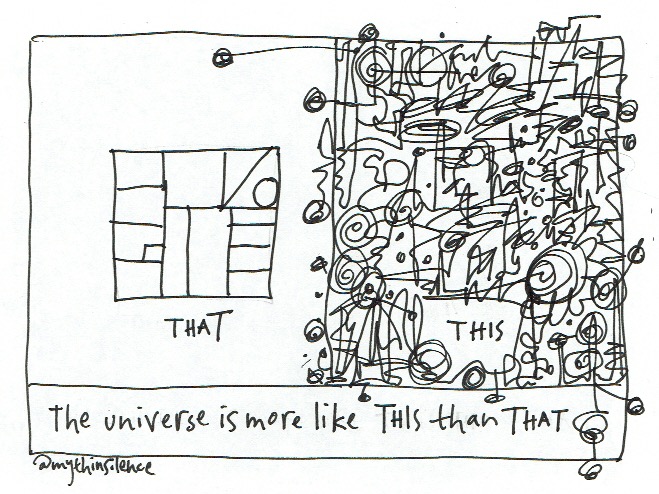 THAT
THIS
The universe is more like THIS than THAT
@mythinsilence